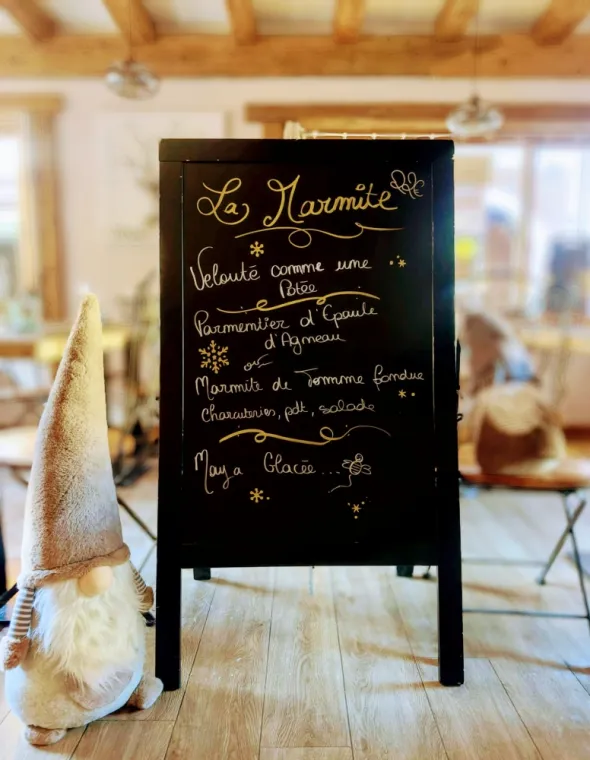 La Marmite
Velouté comme une
Potée
Parmentier d'Epaule
d'Agneau
ou
Marmite de Tomme fondue
Charcuteries, pdt, salade
Maya Glacée...